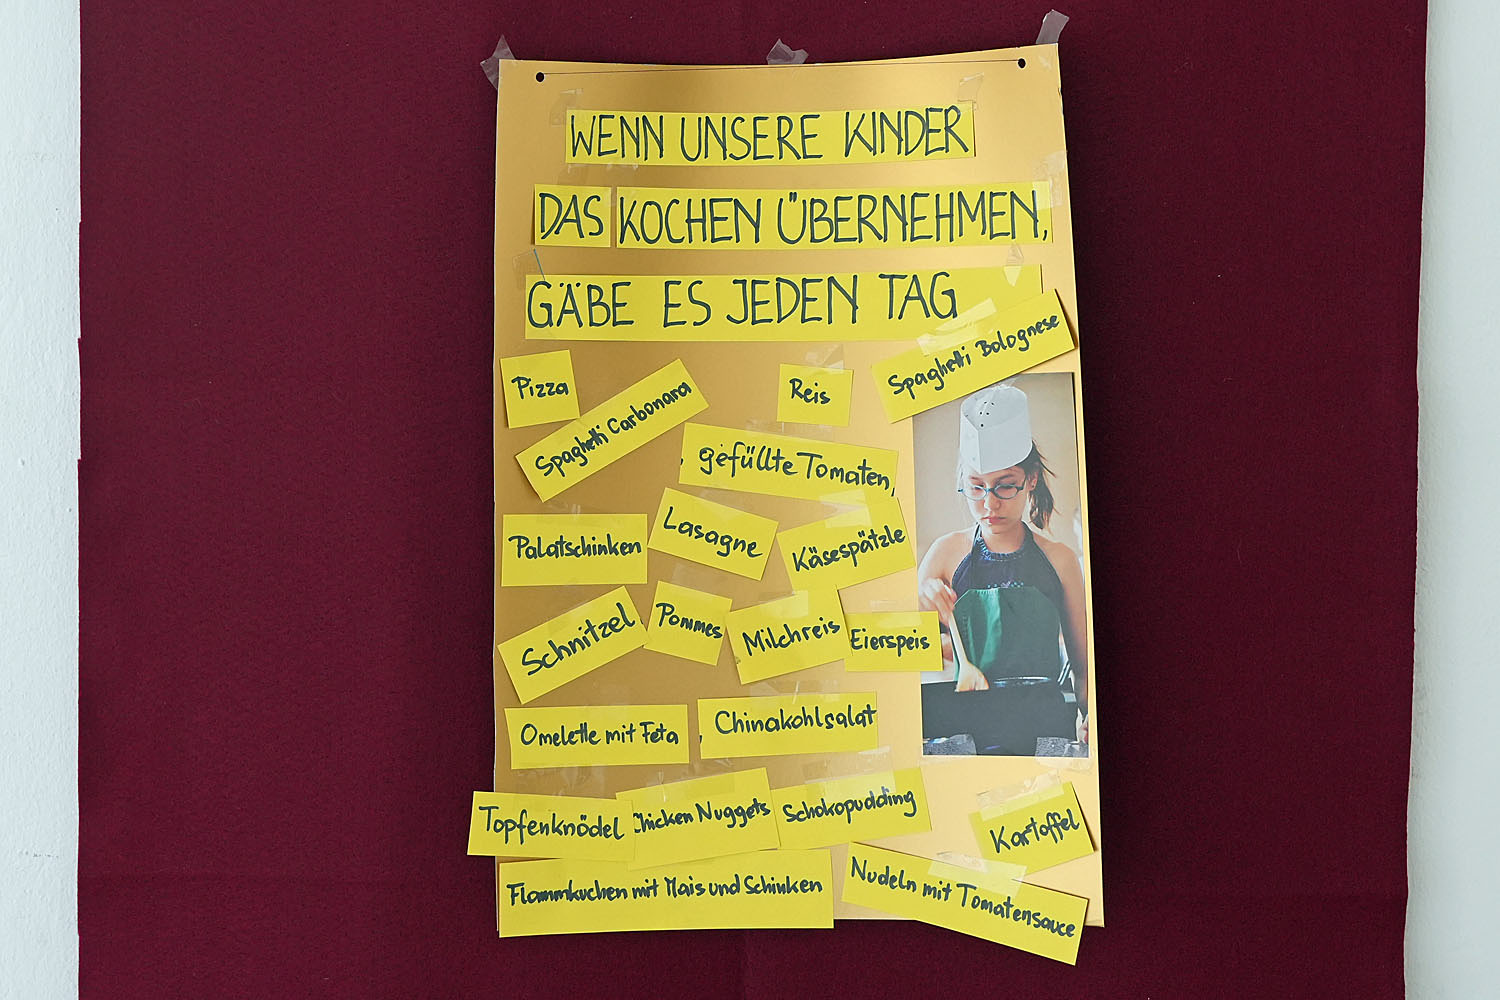 WENN UNSERE KINDER
DAS KOCHEN ÜBERNEHMEN,
GÄBE ES JEDEN TAG
Pizza
Spaghetti Carbonara
Reis
Spaghetti Bolognese
, gefüllte Tomaten,
Palatschinken
Lasagne
Käsespätzle
Schnitzel
Pommes
Milchreis
Eierspeis
Omelette mit Feta
, Chinakohlsalat
Topfenknödel
Chicken Nuggets
Schokopudding
Kartoffel
Flammkuchen mit Mais und Schinken
Nudeln mit Tomatensauce